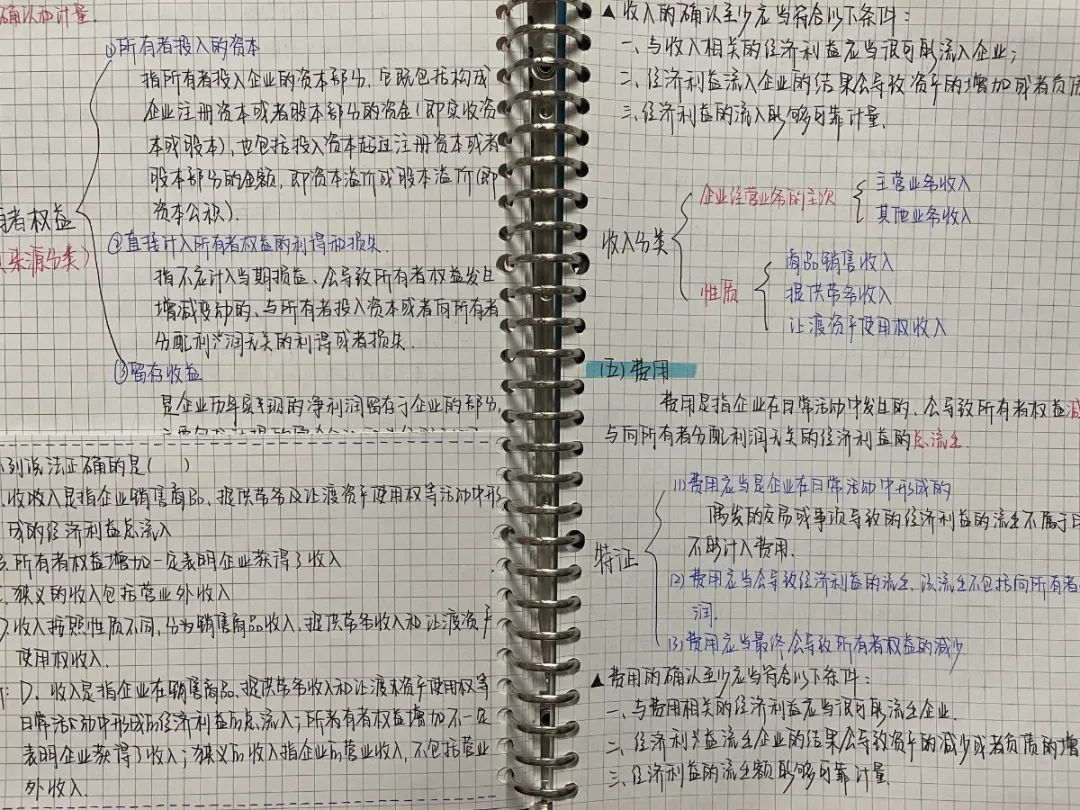 确认和计量.
①所有者投入的资本
指所有者投入企业的资本部分,它既包括构成
企业注册资本或者股本部分的资金(即实收资
本或股本),也包括投入资本超过注册资本或者
股本部分的金额,即资本溢价或股本溢价(即
资本公积).
有者权益
来源分类)
②直接计入所有者权益的利得和损失.
指不应计入当期损益、会导致所有者权益发生
增减变动的、与所有者投入资本或者向所有者
分配利润无关的利得或者损失.
③留存收益
是企业历年实现的净利润留存于企业的部分,
列说法正确的是( )
收收入是指企业销售商品、提供劳务及让渡资产使用权等活动中形
成的经济利益总流入
所有者权益增加一定表明企业获得了收入
狭义的收入包括营业外收入
收入按照性质不同,分为销售商品收入、提供劳务收入和让渡资产
使用权收入.
D. 收入是指企业在销售商品、提供劳务收入和让渡本资产使用权等
日常活动中形成的经济利益的总流入;所有者有者权益增加不一定
表明企业获得了收入;狭义的收入指企业的营业收入,不包括营业
外收入.
▲收入的确认至少应当符合以下条件:
一、与收入相关的经济利益应当很可能流入企业;
二、经济利益流入企业的结果会导致资产的增加或者负债
三、经济利益的流入能够可靠计量.
收入分类
企业经营业务的主次
主营业务收入
其他业务收入
性质
商品销售收入
提供劳务收入
让渡资产使用权收入
(五)费用
费用是指企业在日常活动中发生的、会导致所有者权益减
与向所有者分配利润无关的经济利益的总流出.
特证
(1)费用应当是企业在日常活动中形成的
偶发的交易或事项导致的经济利益的流出不属于日
不能计入费用.
(2)费用应当会导致经济利益的流出,该流出不包括向所有者
润.
(3)费用应当最终会导致所有者权益的减少
▲费用的确认至少应当符合以下条件:
一、与费用相关的经济利益应当很可能流出企业.
二、经济利益流出企业的结果会导致资产的减少或者负债的增
三、经济利益的流出额能够可靠计量.